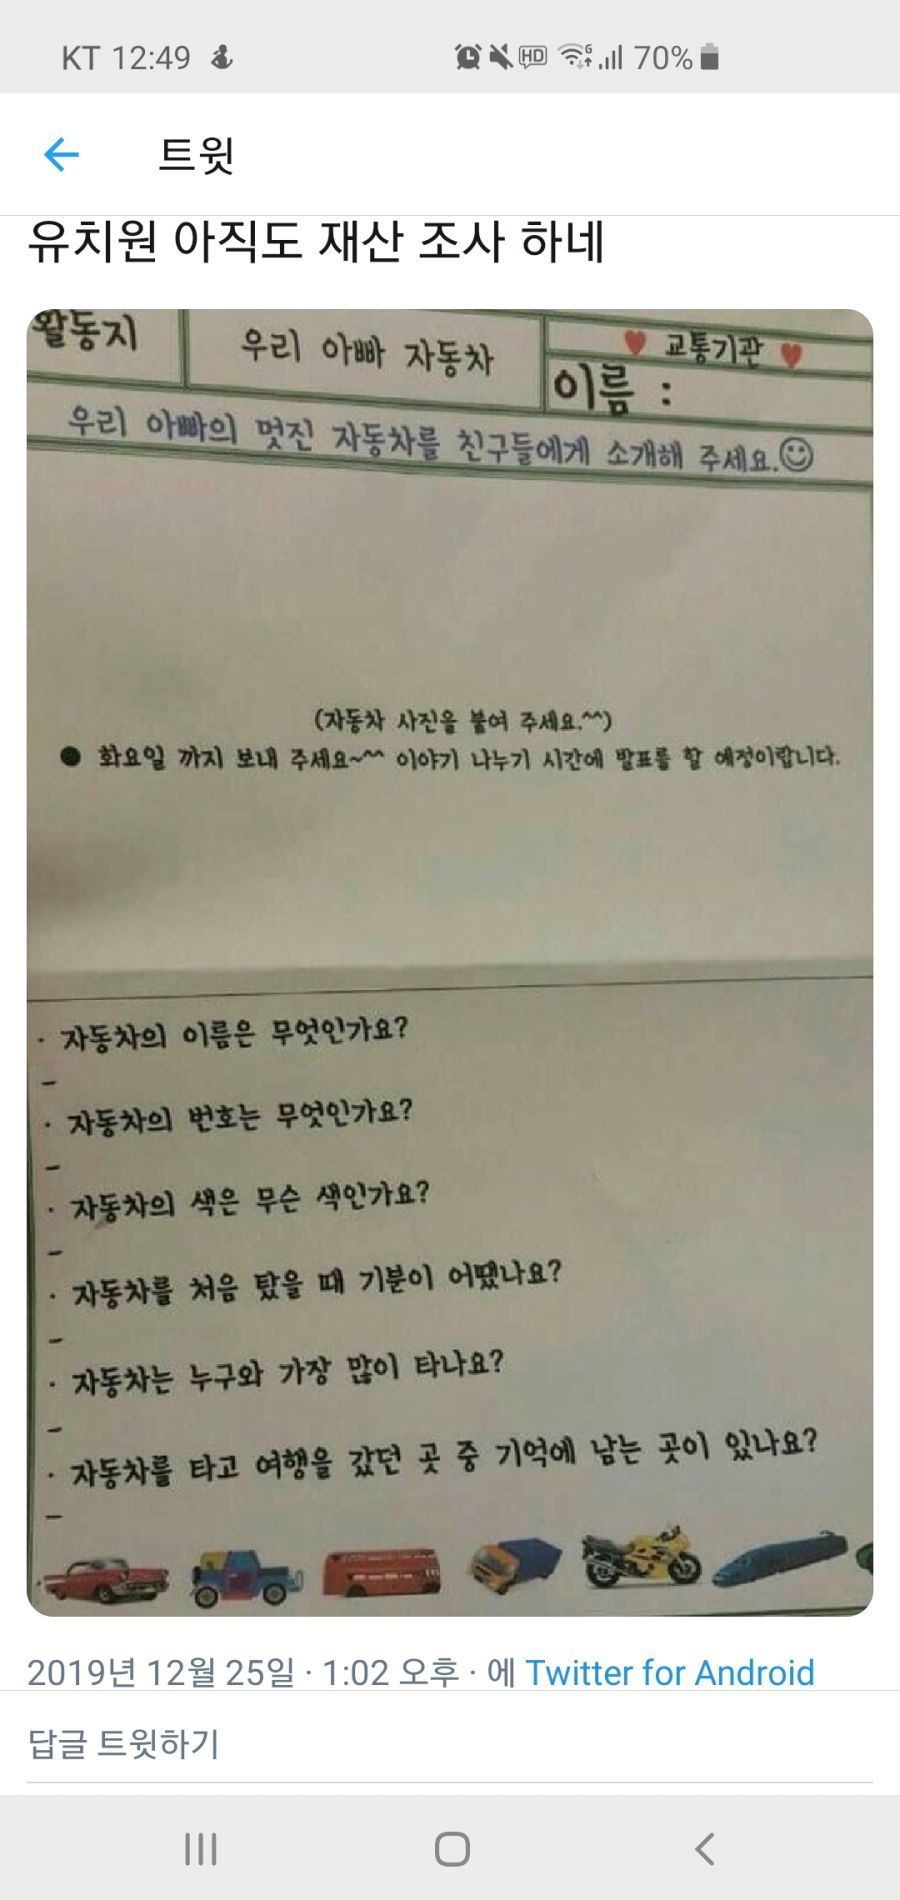 KT 12:49
HD 6 70%
트윗
유치원 아직도 재산 조사 하네
활동지
우리 아빠 자동차
♥ 교통기관 ♥
이름 :
우리 아빠의 멋진 자동차를 친구들에게 소개해 주세요.☺
(자동차 사진을 붙여 주세요.^^)
● 화요일 까지 보내 주세요~^^ 이야기 나누기 시간에 발표를 할 예정이랍니다.
· 자동차의 이름은 무엇인가요?
-
· 자동차의 번호는 무엇인가요?
-
· 자동차의 색은 무슨 색인가요?
-
· 자동차를 처음 탔을 때 기분이 어땠나요?
-
· 자동차는 누구와 가장 많이 타나요?
-
· 자동차를 타고 여행을 갔던 곳 중 기억에 남는 곳이 있나요?
-
2019년 12월 25일 · 1:02 오후 · 에 Twitter for Android
답글 트윗하기